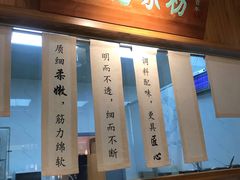 质细柔嫩，筋力绵软
明而不透，细而不断
调料配味，更具匠心